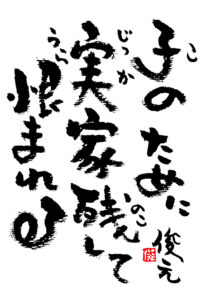 子のために
実家残して
恨まれる
俊元
こ
じっか
のこ
うら